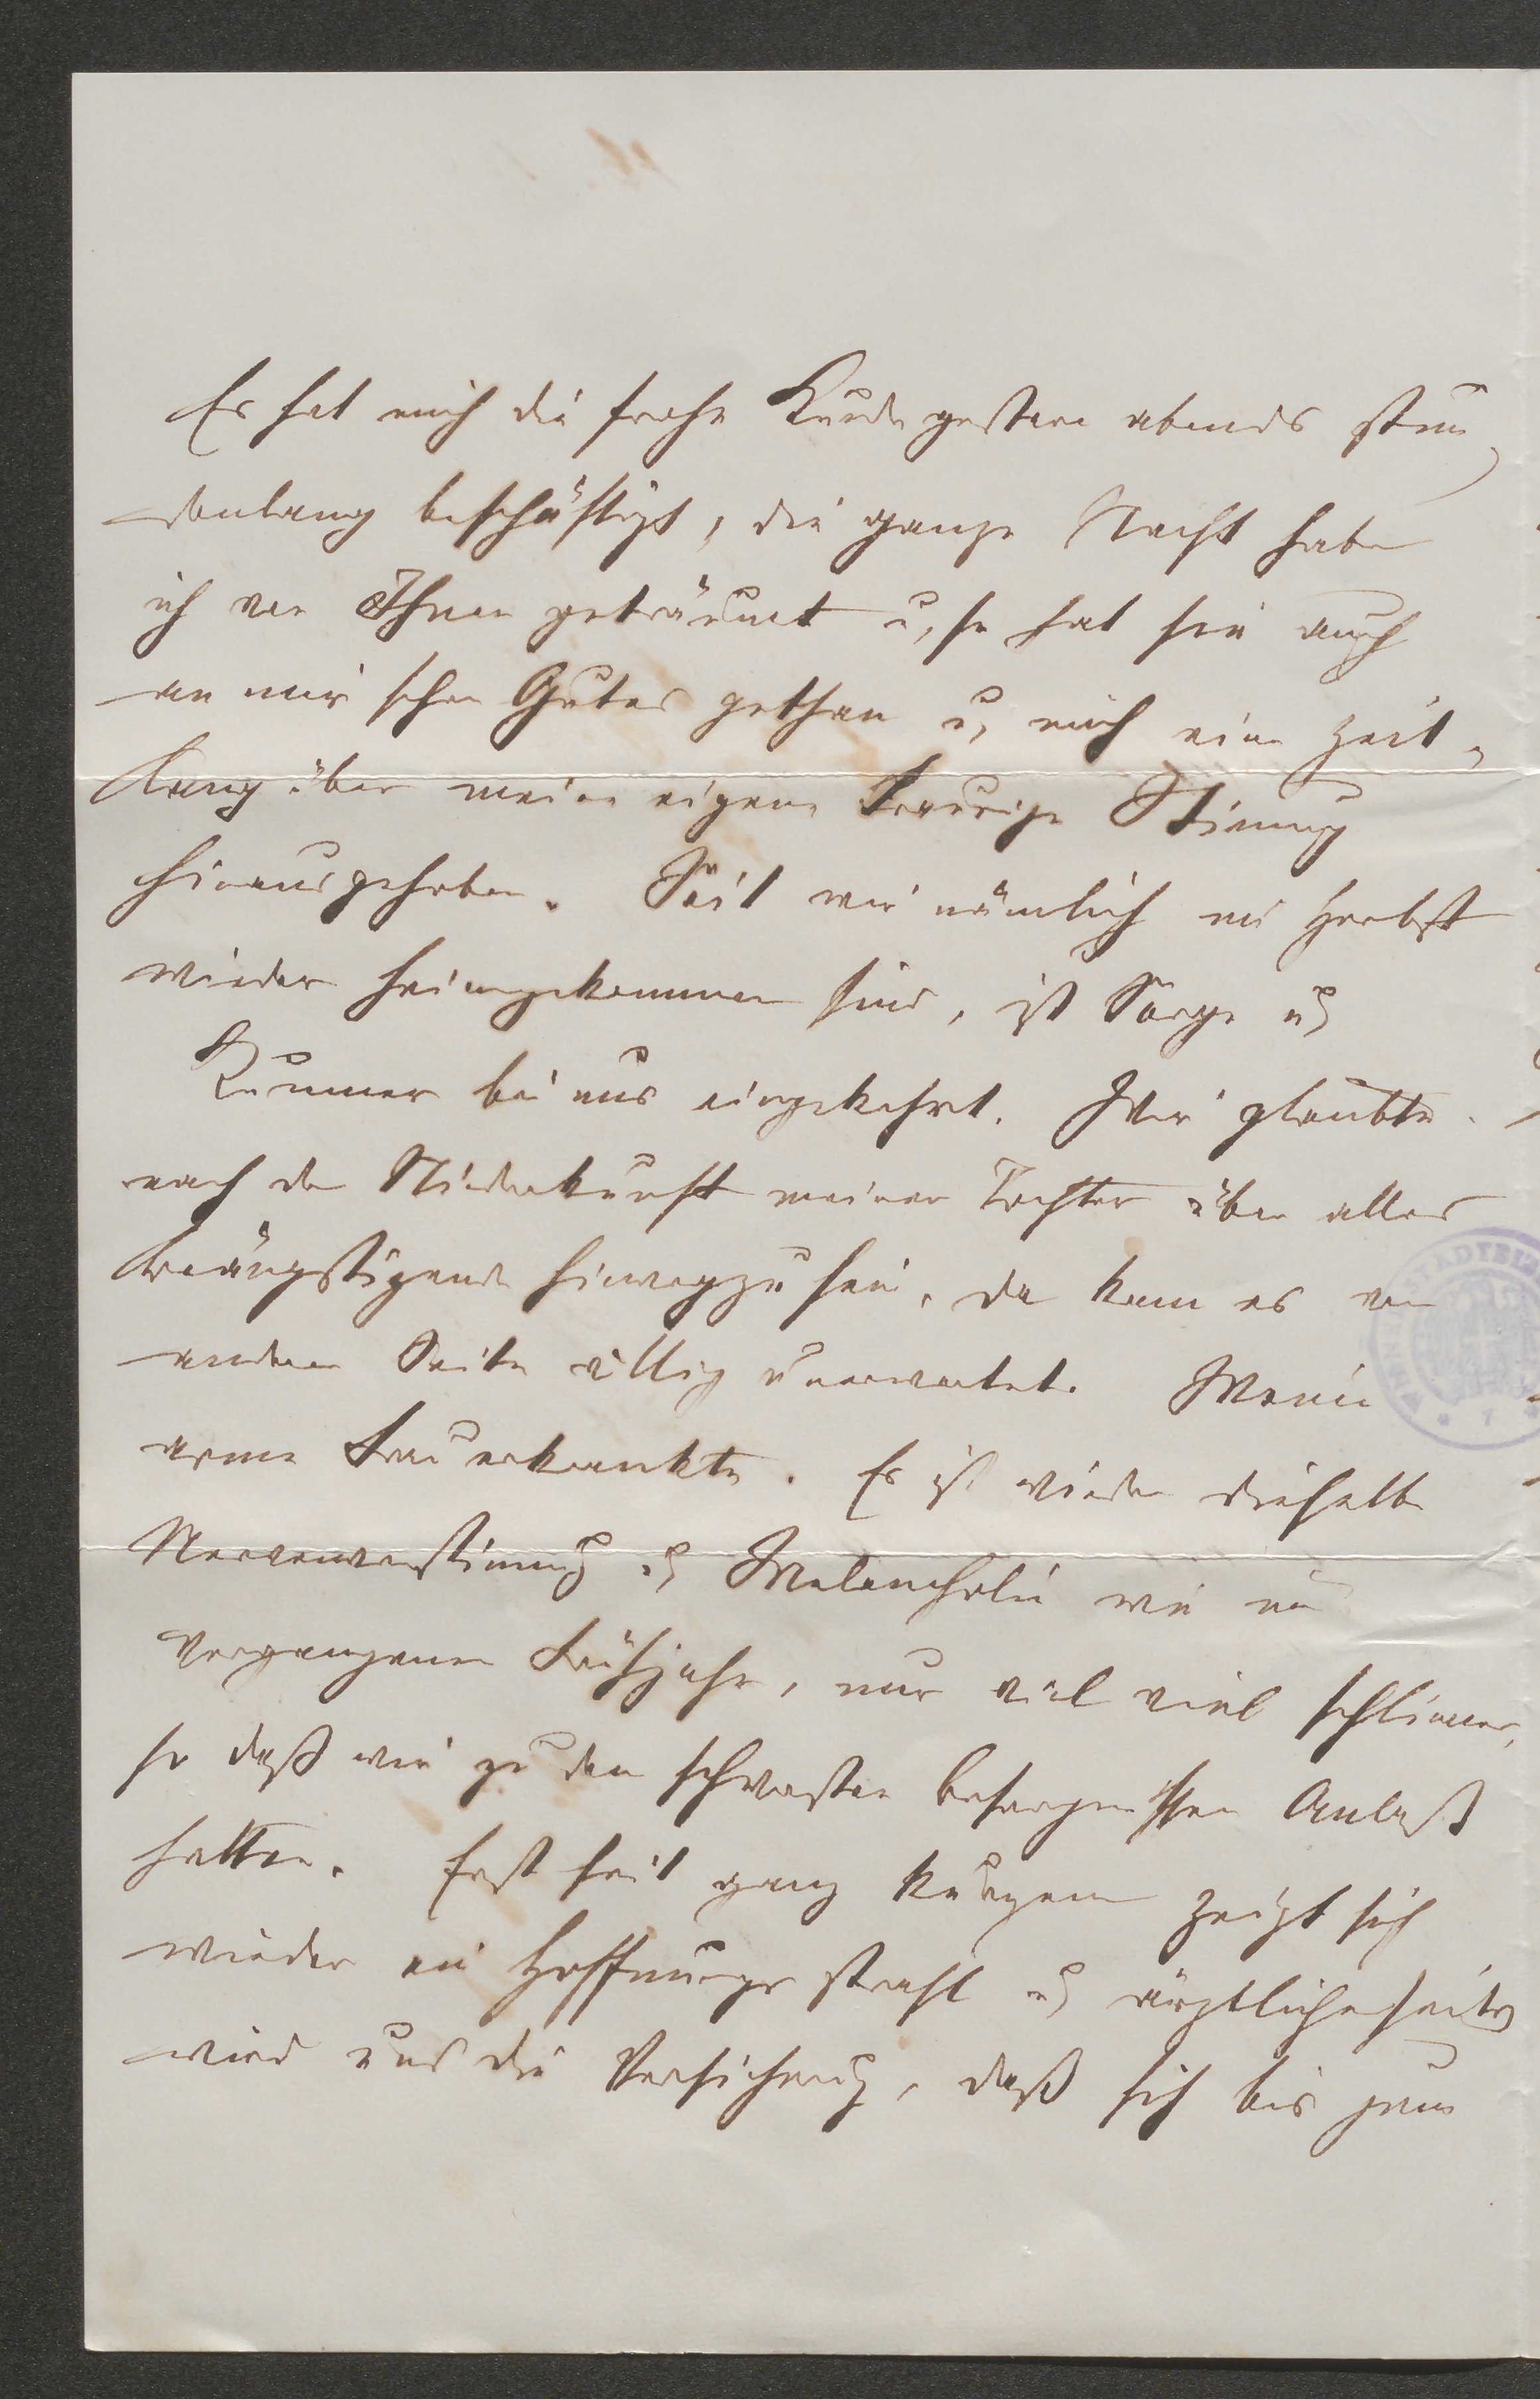 Es hat mich die frohe Kunde gestern abends stun
denlang beschäftigt, die ganze Nacht habe
ich von Ihnen geträumt u, so hat sie auch
an mir schon Gutes gethan u, mich eine Zeit
lang über meine eigene traurige Stimung
hinausgehoben. Seit wir nämlich im Herbst
wieder heimgekommen sind, ist Sorge u
Kummer bei uns eingekehrt. Wir glaubten
nach der Niederkunft meiner Tochter über alles
beängstigende hinwegzusein, da kam es von
anderer Seite völlig unerwartet. Meine
arme Frau erkrankte. Es ist wieder dieselbe
Nervenverstimung u Melancholie wie im
vergangenen Frühjahr, nur viel viel schlimer,
so daß wir zu den schwersten Besorgnissen Anlaß
hatten. Erst seit ganz kurzem zeigt sich
wieder ein Hoffnungsstrahl u ärztlicherseits
wird uns die Versicherung, daß sich bis zum